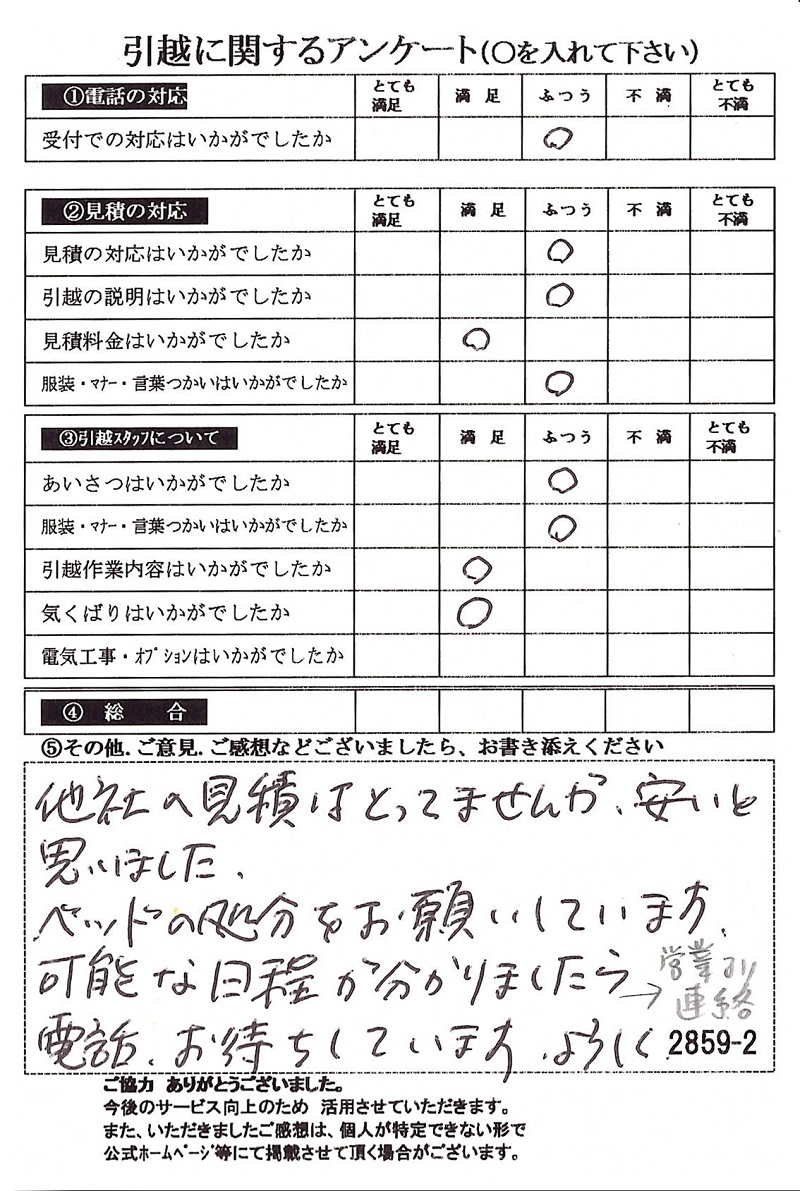 引越に関するアンケート(〇を入れて下さい)
①電話の対応 とても満足 満足 ふつう 不満 とても不満
受付での対応はいかがでしたか ○
②見積の対応 とても満足 満足 ふつう 不満 とても不満
見積の対応はいかがでしたか ○
引越の説明はいかがでしたか ○
見積料金はいかがでしたか ○
服装・マナー・言葉つかいはいかがでしたか ○
③引越スタッフについて とても満足 満足 ふつう 不満 とても不満
あいさつはいかがでしたか ○
服装・マナー・言葉つかいはいかがでしたか ○
引越作業内容はいかがでしたか ○
気くばりはいかがでしたか ○
電気工事・オプションはいかがでしたか
④総合
⑤その他.ご意見.ご感想などございましたら、お書き添えください
他社の見積はとってませんが、安いと
思いました、
ベッドの処分をお願いしています、
可能な日程が分かりましたら
→営業より
連絡
電話、お待ちしています、よろしく
2859-2
ご協力 ありがとうございました。
今後のサービス向上のため 活用させていただきます。
また、いただきましたご感想は、個人が特定できない形で
公式ホームページ等にて掲載させて頂く場合がございます。